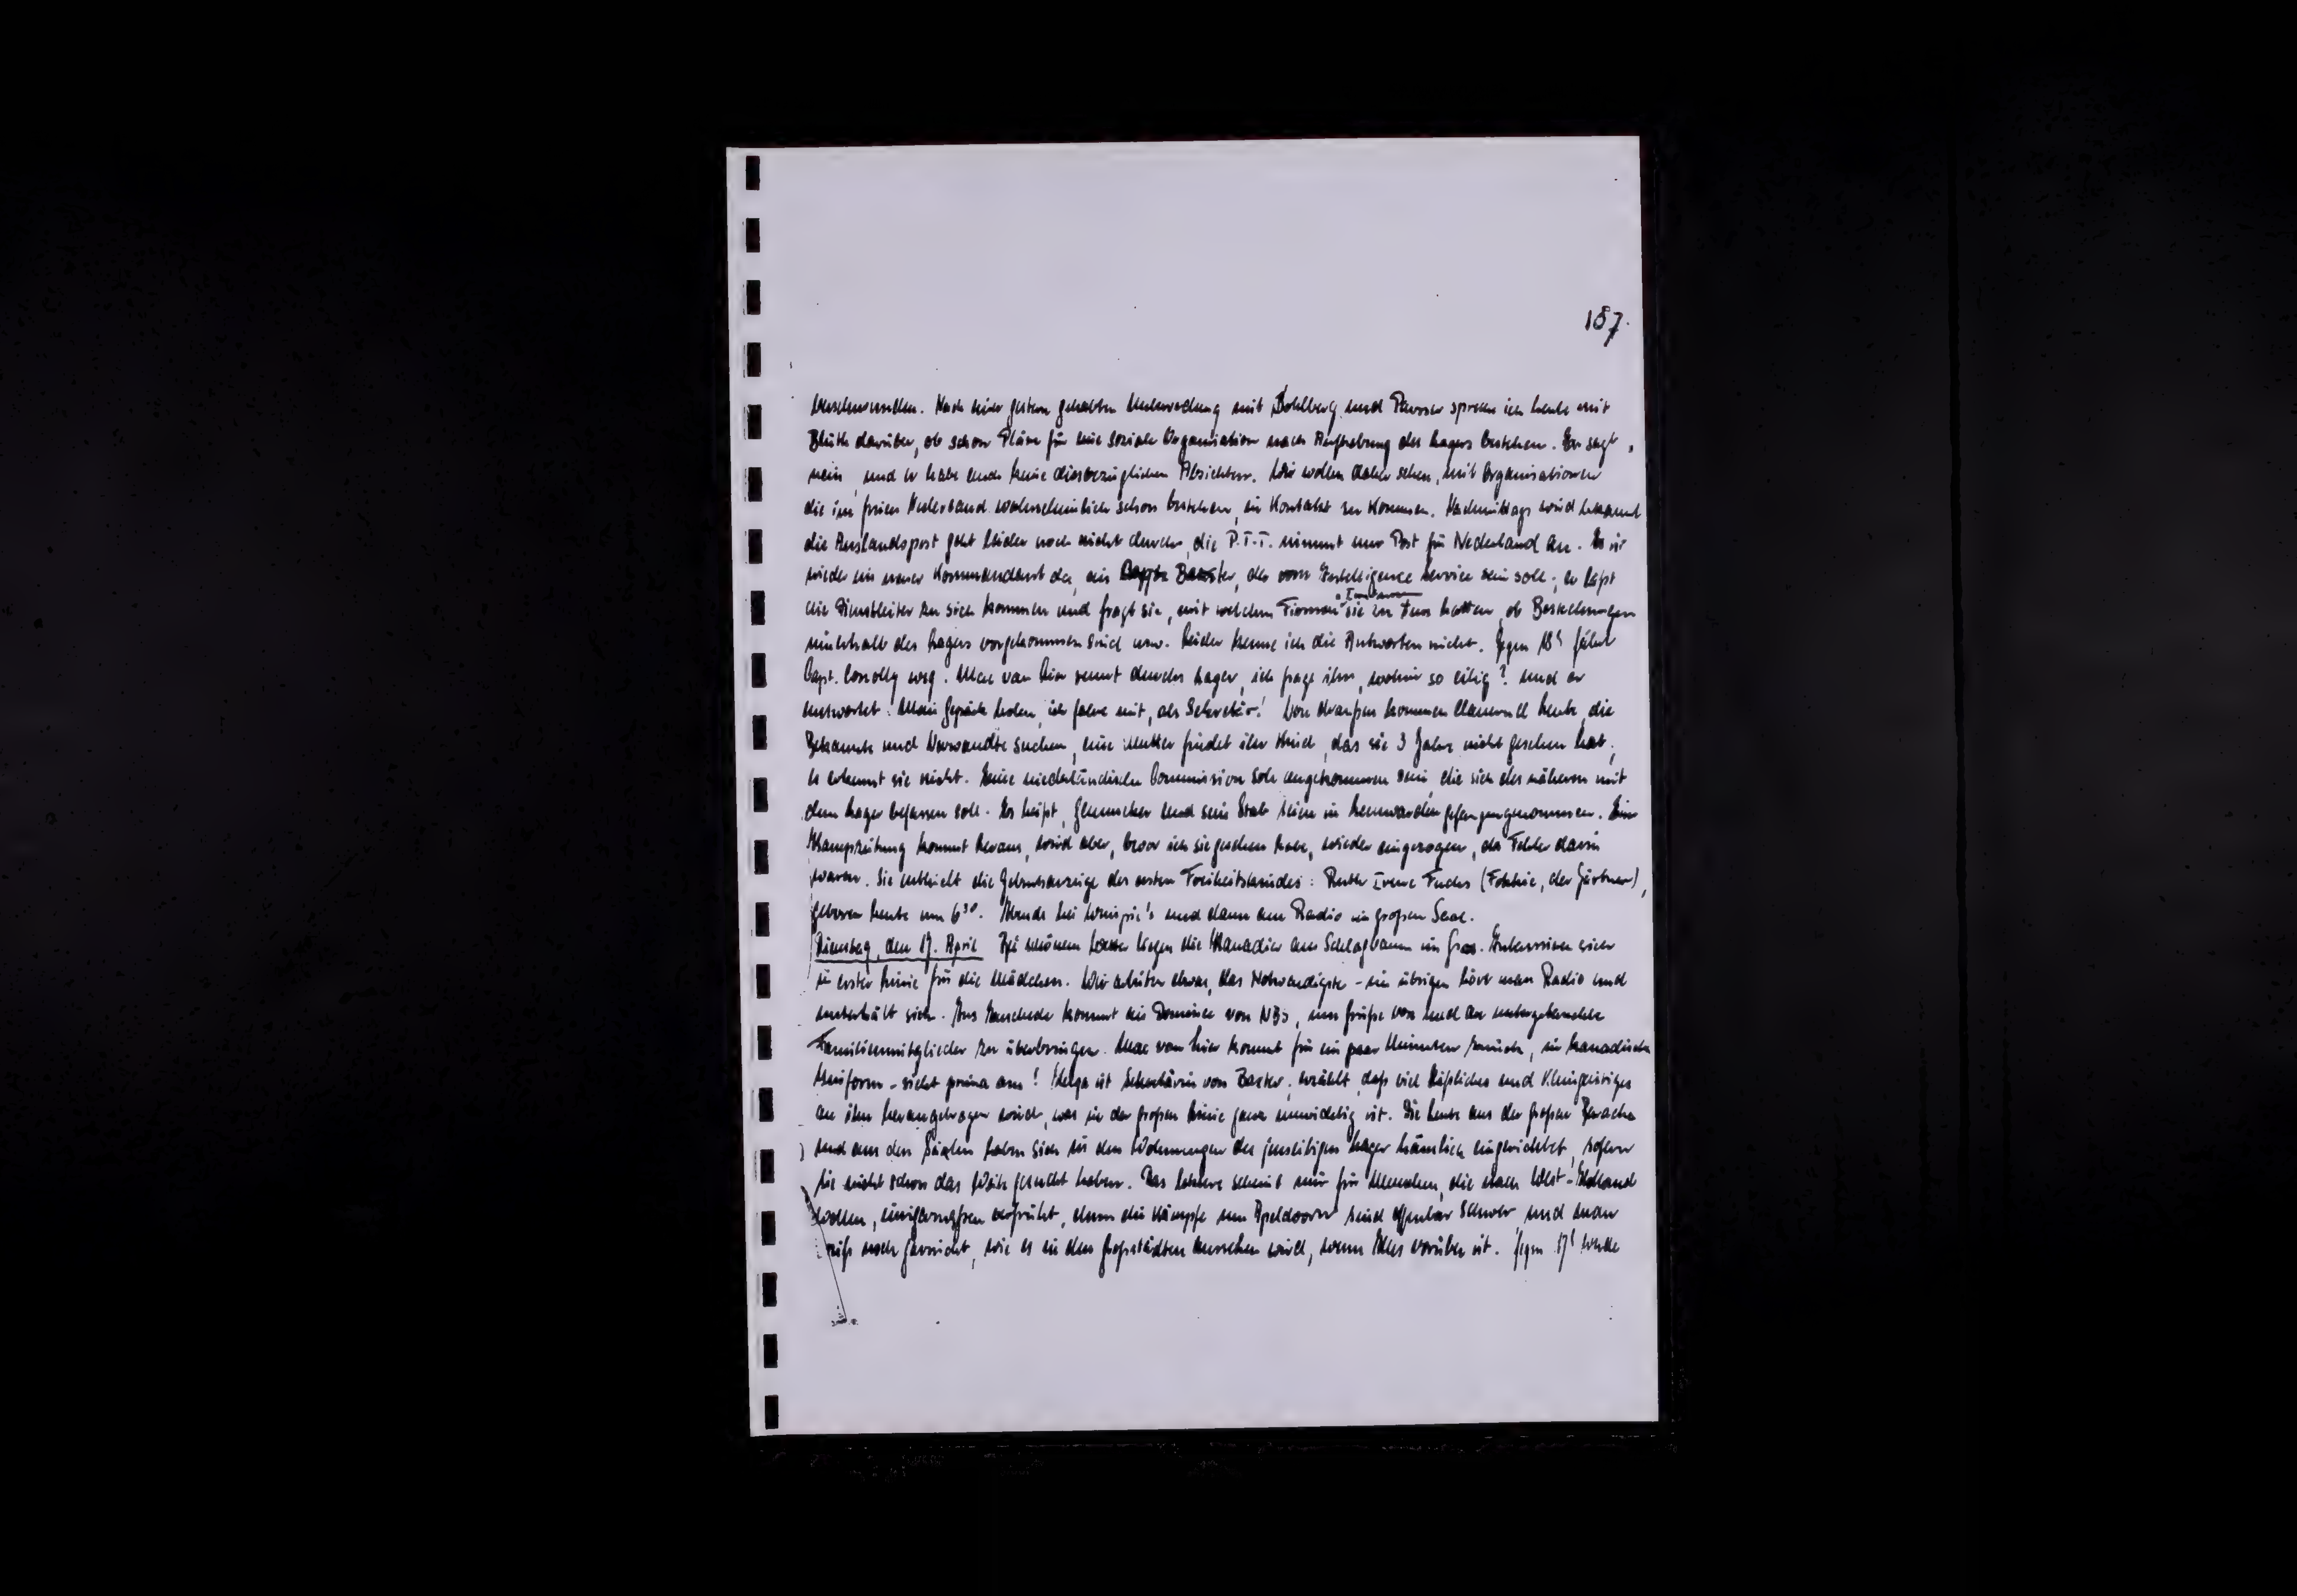 157.
verschwunden. Nach einer gestern gehabten Unterredung mit Bohlberg und Peurser spreche ich heute mit
Blüth darüber, ob schon Pläne für eine soziale Organisation nach Aufhebung des Lagers bestehen. Er sagt,
nein, und er habe auch keine diesbezüglichen Absichten. Wir wollen daher sehen, mit Organisationen
die im freien Nederland wahrscheinlich schon bestehen, in Kontakt zu kommen. Nachmittags wird bekannt
die Auslandspost geht leider noch nicht durch, die P.T.T. nimmt nur Post für Nederland an. Es ist
wieder ein neuer Kommandant da, ein Baxter, der vom Intelligence Service sein soll; er lässt
die Dienstleiter zu sich kommen und fragt sie, mit welchen Firmen sie zu tun hatten, ob Bestechungen
innerhalb des Lagers vorgekommen sind usw. Leider kenne ich die Antworten nicht. Gegen 18h fährt
Capt. Conolly weg. Max van Lier rennt durchs Lager, ich frage ihn, wohin so eilig? und er
antwortet: Mein Gepäck holen, ich fahre mit, als Sekretär! Von draußen kommen dauernd Leute, die
Bekannte und Verwandte suchen, eine Mutter findet ihr Kind, das sie 3 Jahre nicht gesehen hat;
es erkennt sie nicht. Eine niederländische Commission soll angekommen sein, die sich des näheren mit
dem Lager befassen soll. Es heißt, Gemmeker und sein Stab seien in Leeuwarden gefangengenommen. Eine
Kampzeitung kommt heraus, wird aber, bevor ich sie gesehen habe, wieder eingezogen, da Fehler darin
waren. Sie enthielt die Geburtsanzeige des ersten Freiheitskindes: Ruth Irene Fuchs (Tochter, der Gärtner),
geboren heute um 6³⁰. Abends bei und dann am Radio im großen Saal.
Dienstag, den 17. April Bei schönem liegen die Kanadier am Schlagbaum im Gras. Interessieren sich
in erster Linie für die Mädchen. Wir arbeiten etwas, das Notwendigste - im übrigen hört man Radio und
unterhält sich. Aus Enschede kommt ein Dominee von NBS, um Grüße von und an untergetauchte
Familienmitglieder zu überbringen. Max van Lier kommt für ein paar Minuten zurück, in kanadischer
Uniform - sieht prima aus! Helga ist Sekretärin von Baxter; erzählt, daß viel Häßliches und Kleingeistiges
an ihn herangetragen wird, was in der großen Linie ganz unwichtig ist. Die Leute aus der großen Baracke
und aus den Sälen haben sich in den Wohnungen des jenseitigen Lager häuslich eingerichtet, sofern
sie nicht schon das Weite gesucht haben. Das letztere scheint mir für Menschen, die nach West-Holland
wollen, einigermaßen verfrüht, denn die Kämpfe um Apeldoorn sind offenbar schwer und man
weiß noch garnicht, wie es in den Großstädten aussehen wird, wenn Alles vorüber ist. Gegen 17h